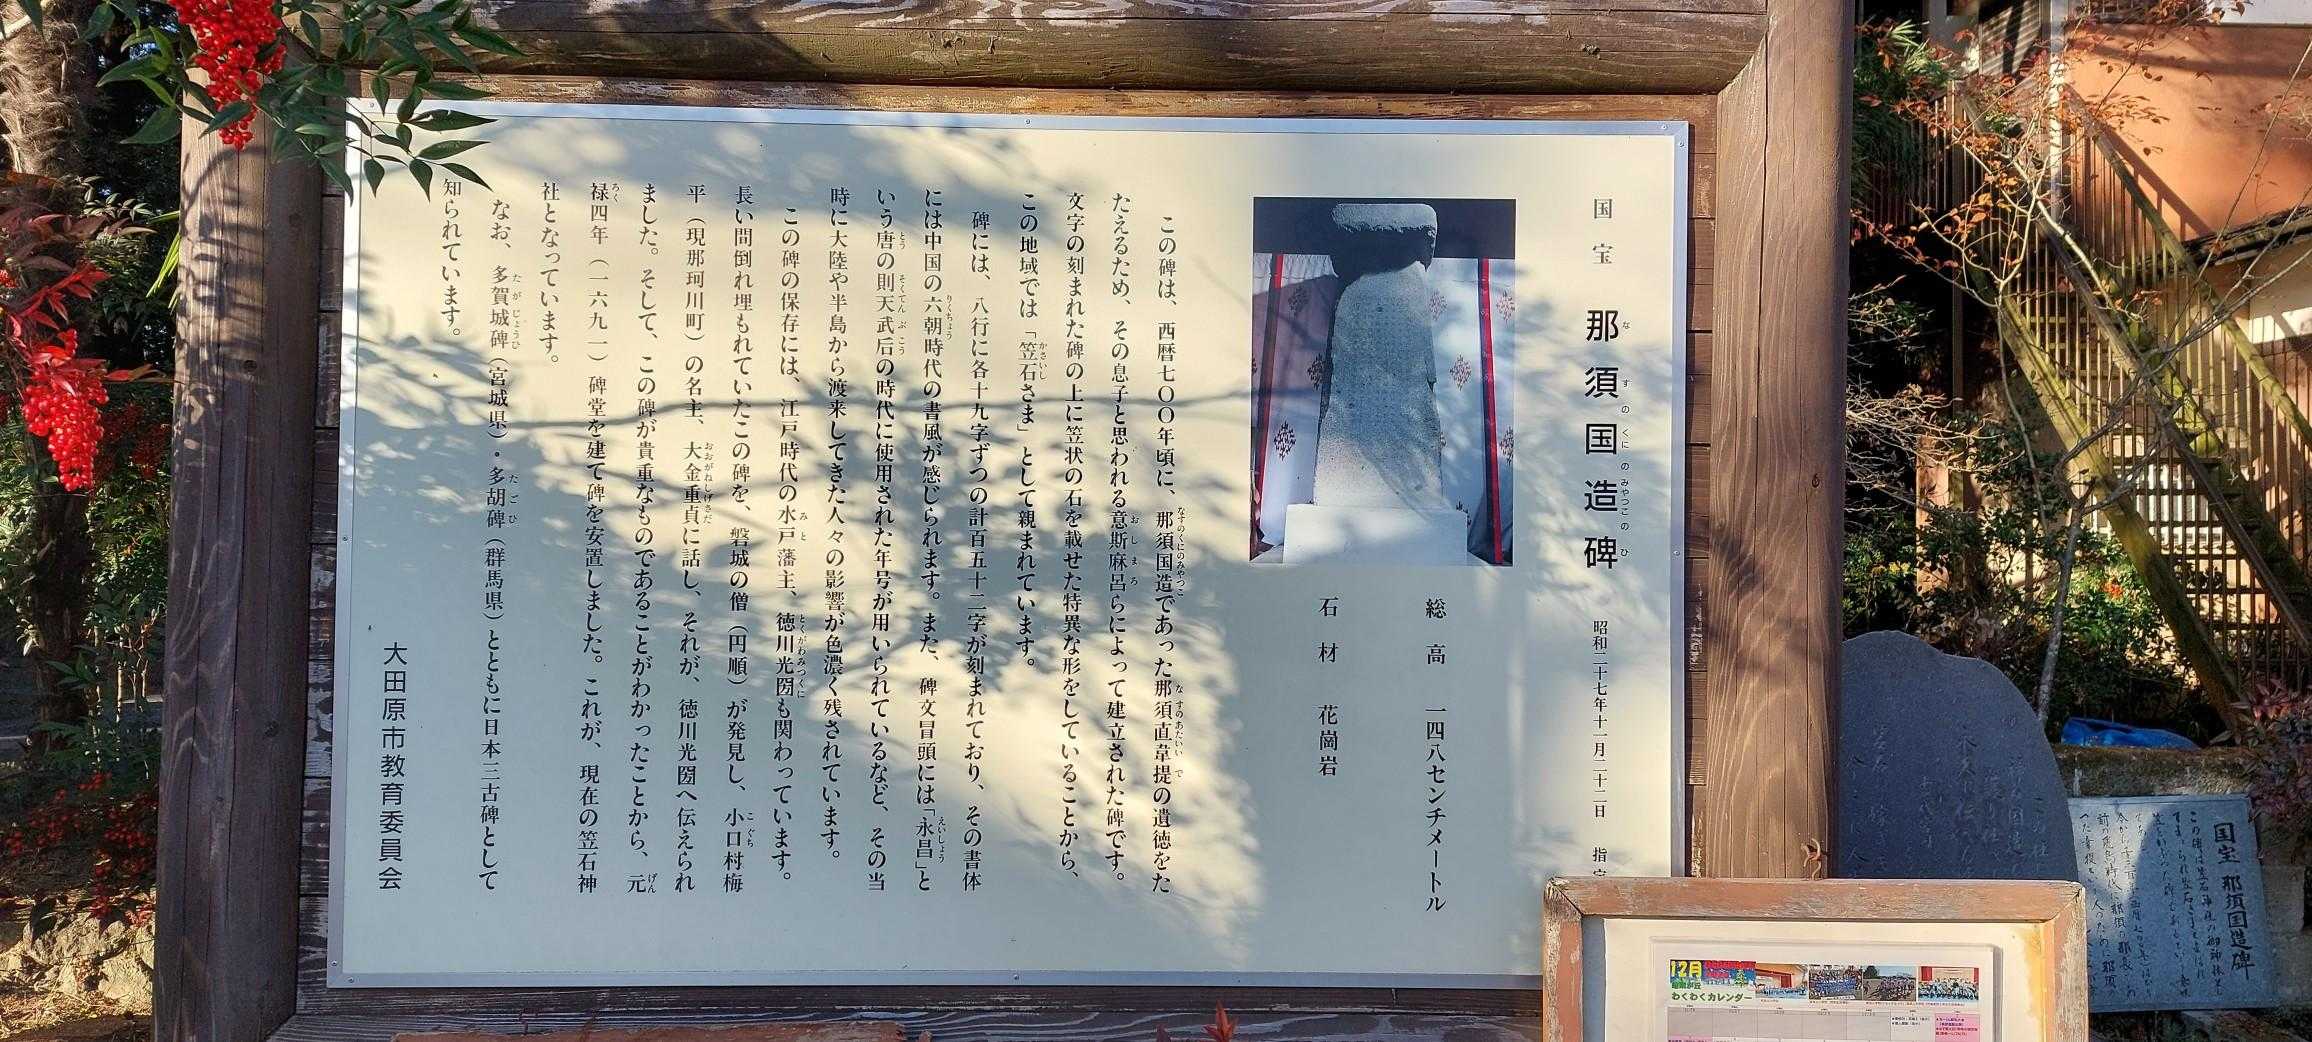 国宝 那須国造碑 昭和二十七年十一月二十二日 指
な す の くに の みやつこ の ひ
総高 一四八センチメートル
石材 花崗岩
この碑は、西暦七〇〇年頃に、那須国造であった那須直韋提の遺徳をた
なすのくにのみやつこ なすのあたいいで
たえるため、その息子と思われる意斯麻呂らによって建立された碑です。
おしまろ
文字の刻まれた碑の上に笠状の石を載せた特異な形をしていることから、
この地域では「笠石さま」として親まれています。
かさいし
碑には、八行に各十九字ずつの計百五十二字が刻まれており、その書体
には中国の六朝時代の書風が感じられます。また、碑文冒頭には「永昌」と
りくちょう えいしょう
いう唐の則天武后の時代に使用された年号が用いられているなど、その当
とう そくてんぶこう
時に大陸や半島から渡来してきた人々の影響が色濃く残されています。
この碑の保存には、江戸時代の水戸藩主、徳川光圀も関わっています。
みと とくがわみつくに
長い間倒れ埋もれていたこの碑を、磐城の僧（円順）が発見し、小口村梅
こぐち
平（現那珂川町）の名主、大金重貞に話し、それが、徳川光圀へ伝えられ
おおがねしげさだ
ました。そして、この碑が貴重なものであることがわかったことから、元
げん
禄四年（一六九一）碑堂を建て碑を安置しました。これが、現在の笠石神
ろく
社となっています。
なお、多賀城碑（宮城県）・多胡碑（群馬県）とともに日本三古碑として
たがじょうひ たごひ
知られています。
大田原市教育委員会
国宝 那須国造碑
12月
わくわくカレンダー